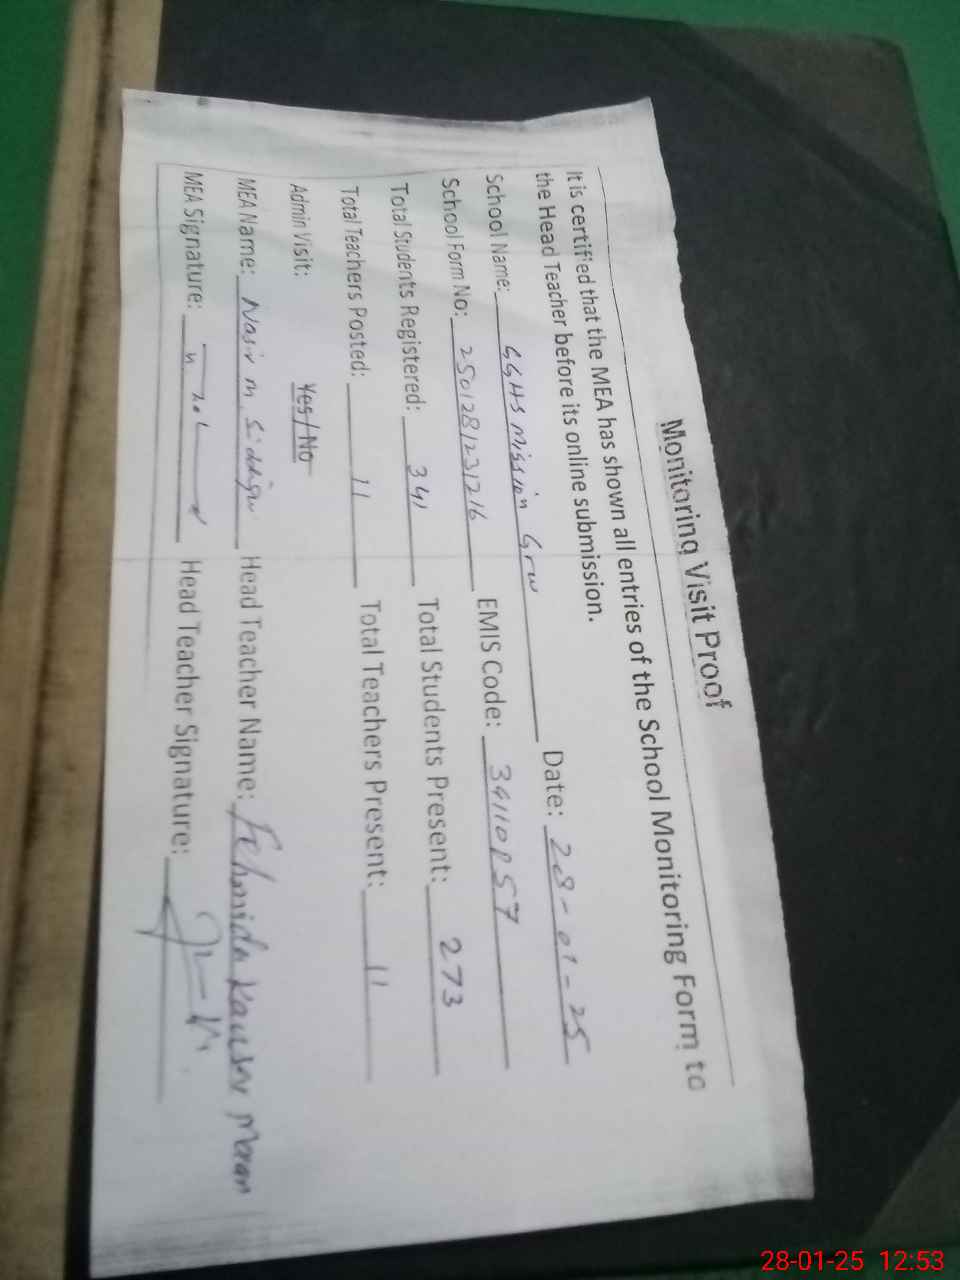 Monitoring Visit Proof
It is certified that the MEA has shown all entries of the School Monitoring Form to
the Head Teacher before its online submission.
School Name: GGHS Mission Grw Date: 28-01-25
School Form No: 2501281231216 EMIS Code:
Total Students Registered: 341 Total Students Present: 273
Total Teachers Posted: 11 Total Teachers Present: 11
Admin Visit: Yes/No
MEA Name: Nasir M. Siddiqui Head Teacher Name: Fehmida Kausar
MEA Signature: Head Teacher Signature:
28-01-25 12:53